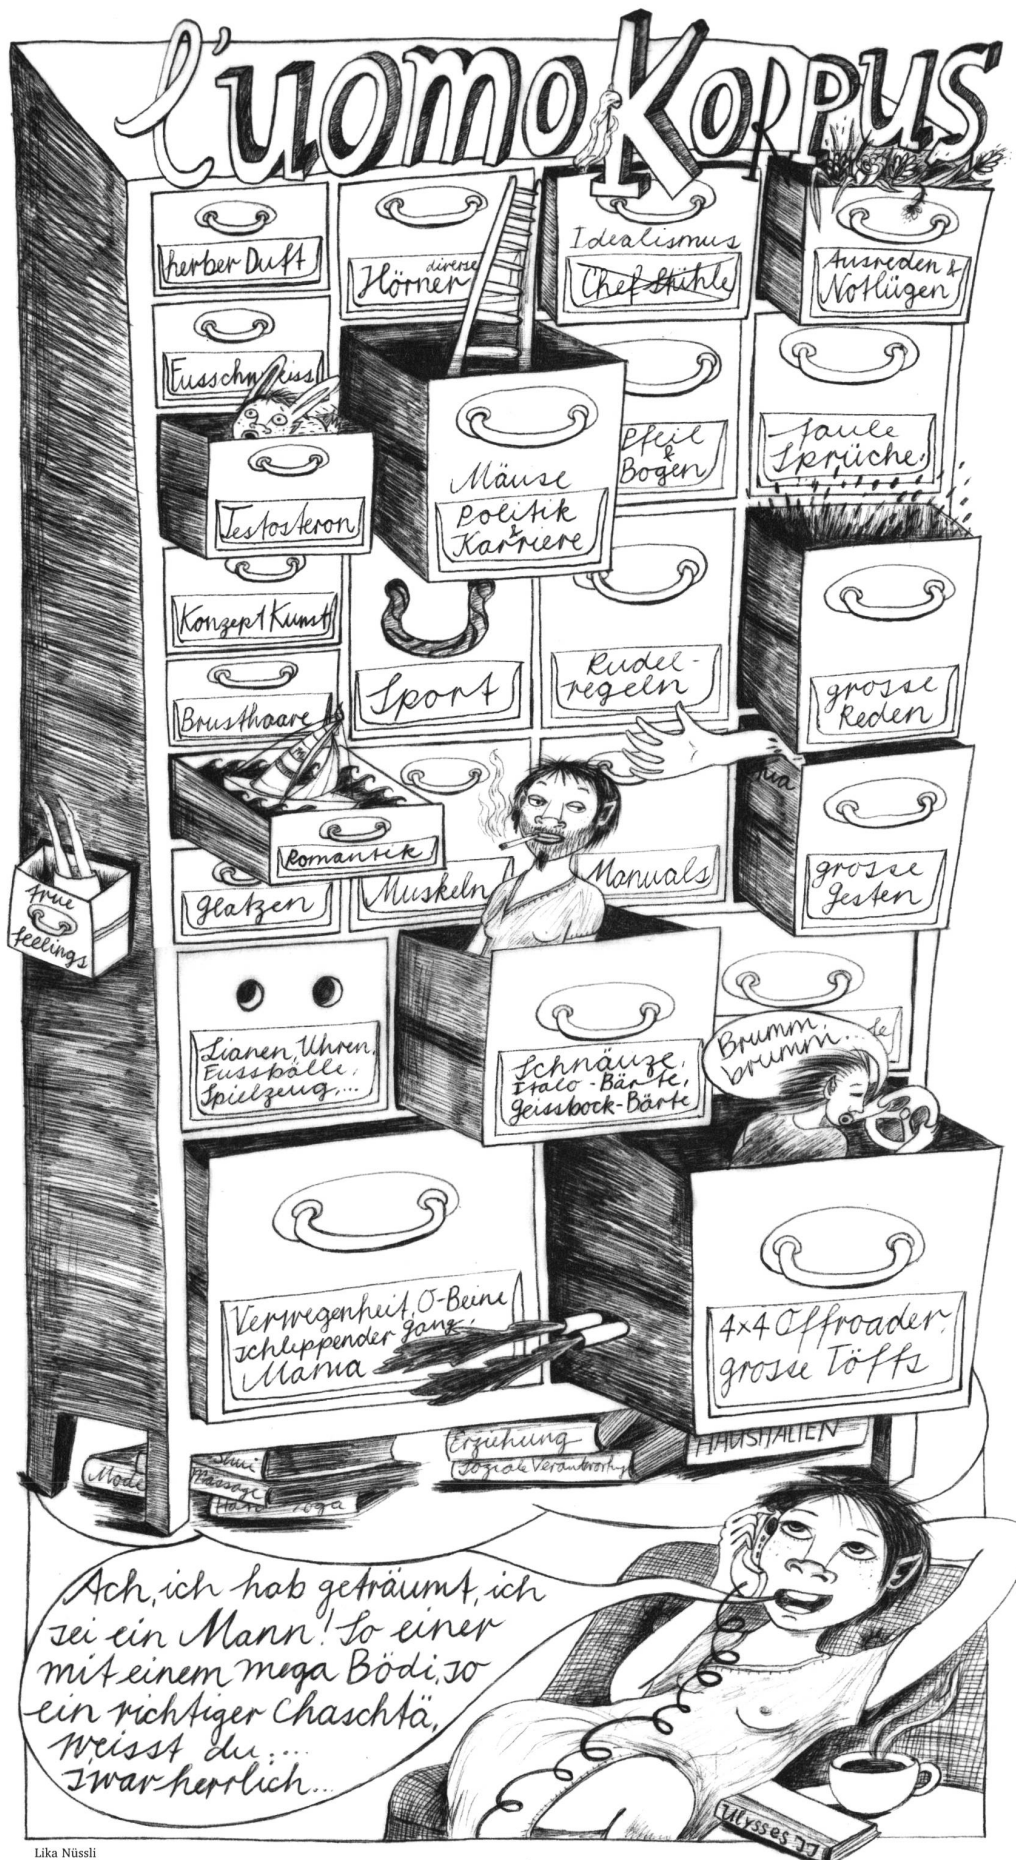 l'uomo Korpus
herber Duft
diverse
Hörner
Idealismus
Chef Stühle
Ausreden &
Notlügen
Fussschweiss
Testosteron
Mäuse
Politik
&
Karriere
Pfeil
&
Bogen
faule
Sprüche
Konzept Kunst
Brusthaare
Sport
Rudel-
regeln
grosse
Reden
Romantik
Glatzen
Muskeln
Manuals
grosse
Gesten
true
feelings
Lianen, Uhren,
Fussbälle,
Spielzeug,...
Schnäuze,
Italo-Bärte,
Geissbock-Bärte
Brumm,
brumm...
Verwegenheit, O-Beine
schleppender Gang,
Mania
4x4 Offroader,
grosse Töffs
Mode
Massage
Yoga
Erziehung
Soziale Verantwortung
HAUSHALTEN
Ach, ich hab geträumt, ich
sei ein Mann! So einer
mit einem mega Bödi, so
ein richtiger Chaschtä,
weisst du....
s'war herrlich...
Ulysses JJ
Lika Nüssli